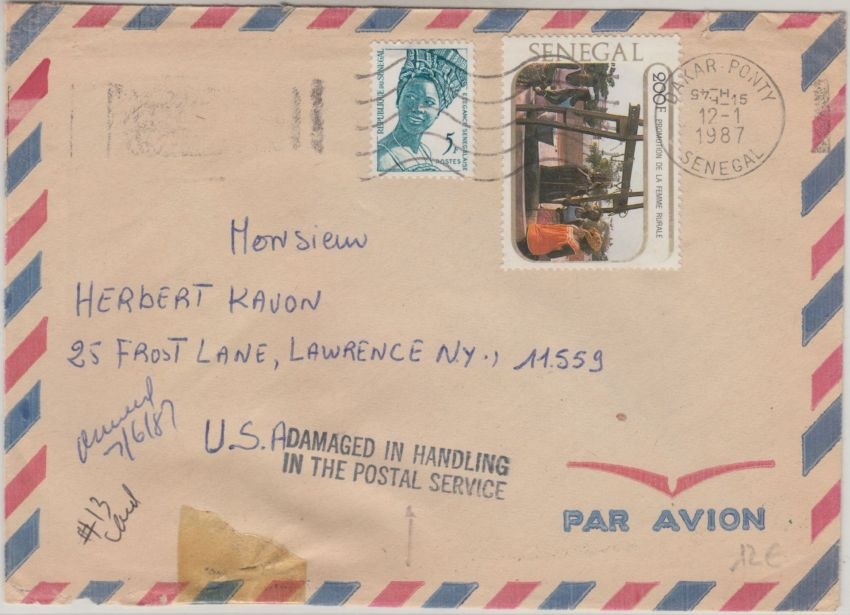 SENEGAL
200F PROMOTION DE LA FEMME RURALE
REPUBLIQUE DU SENEGAL
ELEGANCE SENEGALAISE
5F
POSTES
DAKAR-PONTY
12-1
1987
SENEGAL
Monsieur
HERBERT KAVON
25 FROST LANE, LAWRENCE N.Y., 11.559
U.S.A
7/6/87
#13
Card
DAMAGED IN HANDLING
IN THE POSTAL SERVICE
PAR AVION
12€